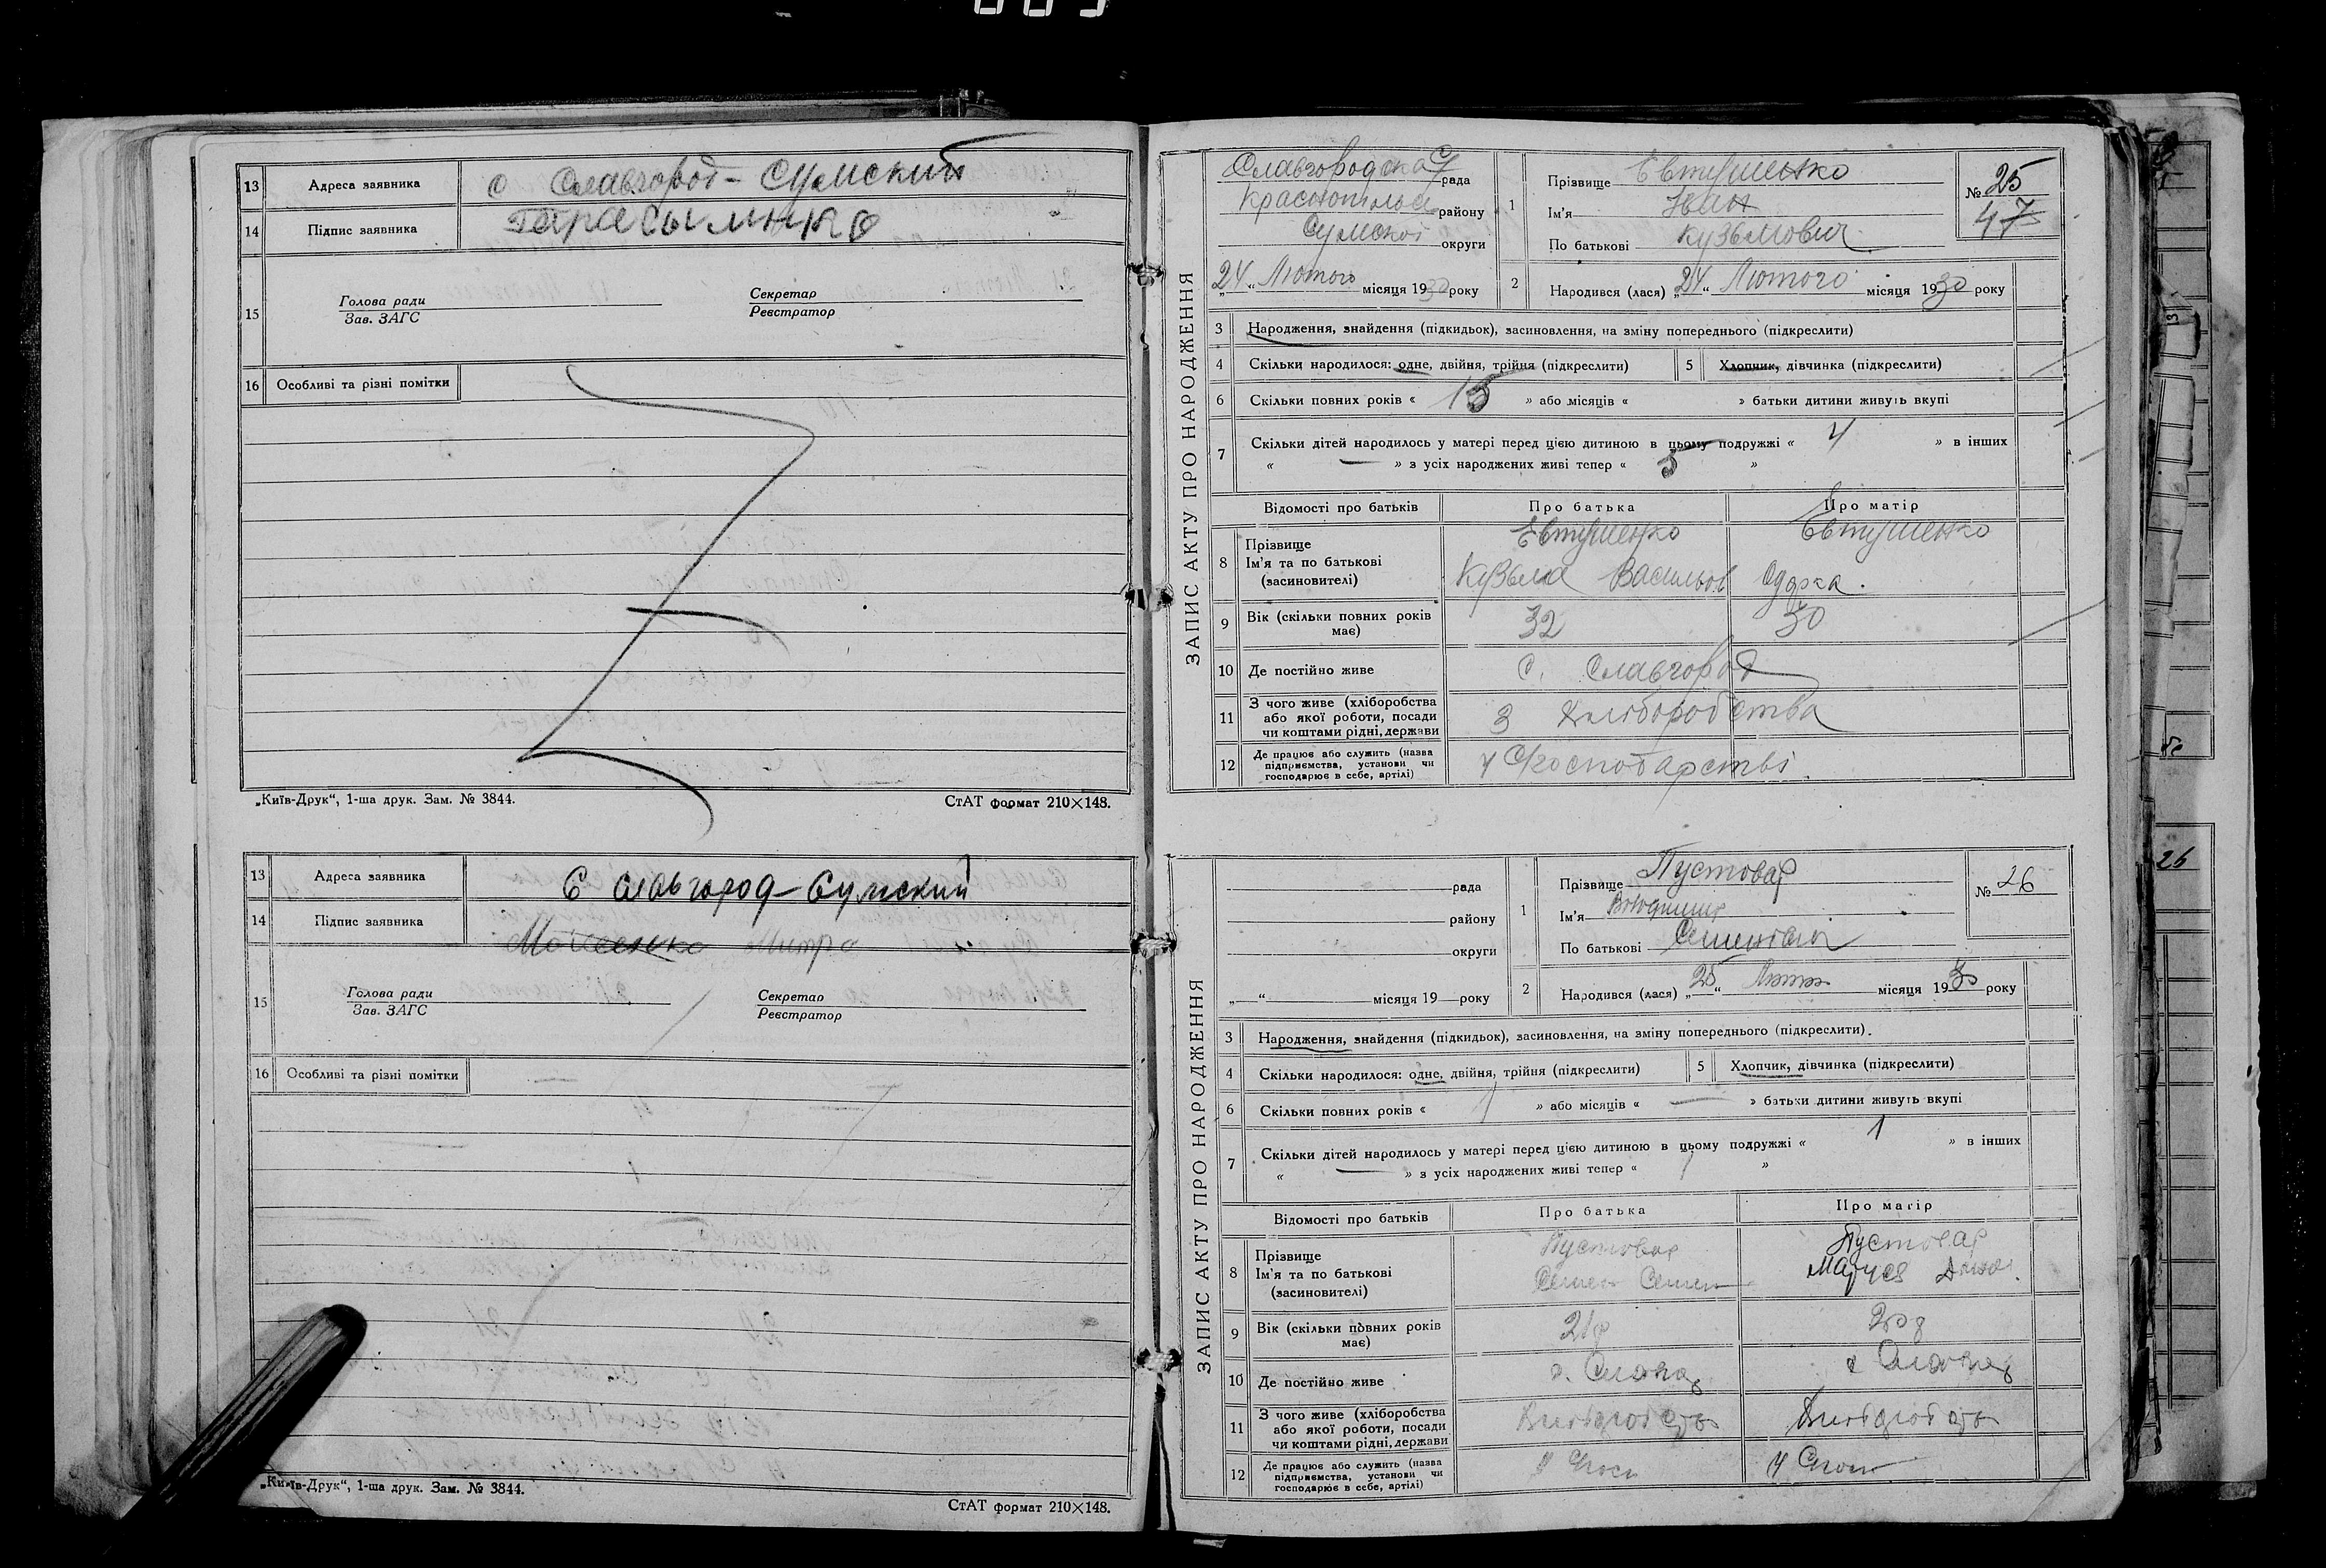 13 Адреса заявника с Славгород-Сумский
14 Підпис заявника
15 Голова ради Зав. ЗАГС Секретар Реєстратор
16 Особливі та різні помітки
„Київ-Друк“, 1-ша друк. Зам. № 3844. СтАТ формат 210×148.
13 Адреса заявника С Славгород-Сумский
14 Підпис заявника Моисеенко Митро
15 Голова ради Зав. ЗАГС Секретар Реєстратор
16 Особливі та різні помітки
„Київ-Друк“, 1-ша друк. Зам. № 3844.
СтАТ формат 210×148.
ЗАПИС АКТУ ПРО НАРОДЖЕННЯ
Славгородска с/ рада
району
Сумскої округи
„24“ Лютого місяця 1930 року
1 Прізвище Євтушенко
Ім'я Іван
По батькові Кузьмович
№ 25
47
2 Народився (лася) „24“ Лютого місяця 1930 року
3 Народження, знайдення (підкидьок), засиновлення, на зміну попереднього (підкреслити)
4 Скільки народилося: одне, двійня, трійня (підкреслити) 5 Хлопчик, дівчинка (підкреслити)
6 Скільки повних років « 15 » або місяців « » батьки дитини живуть вкупі
7 Скільки дітей народилось у матері перед цією дитиною в цьому подружжі « 4 » в інших
« — » з усіх народжених живі тепер « 5 »
Відомості про батьків Про батька Про матір
8 Прізвище Євтушенко Євтушенко
Ім'я та по батькові Кузьма Васильов
(засиновителі)
9 Вік (скільки повних років має) 32 30
10 Де постійно живе с. Славгород
11 З чого живе (хліборобства або якої роботи, посади чи коштами рідні, держави З Хліборобства
12 Де працює або служить (назва підприємства, установи чи господарює в себе, артілі) у С/господарстві
ЗАПИС АКТУ ПРО НАРОДЖЕННЯ
рада
району
округи
„ “ місяця 19 року
1 Прізвище Пустовар
Ім'я Володимир
По батькові
№ 26
2 Народився (лася) „25“ місяця 1930 року
3 Народження, знайдення (підкидьок), засиновлення, на зміну попереднього (підкреслити).
4 Скільки народилося: одне, двійня, трійня (підкреслити) 5 Хлопчик, дівчинка (підкреслити)
6 Скільки повних років « 1 » або місяців « — » батьки дитини живуть вкупі
7 Скільки дітей народилось у матері перед цією дитиною в цьому подружжі « 1 » в інших
« — » з усіх народжених живі тепер « 1 »
Відомості про батьків Про батька Про матір
8 Прізвище Пустовар Пустовар
Ім'я та по батькові Семен Семен Маруся
(засиновителі)
9 Вік (скільки повних років має)
10 Де постійно живе
11 З чого живе (хліборобства або якої роботи, посади чи коштами рідні, держави
12 Де працює або служить (назва підприємства, установи чи господарює в себе, артілі)
26